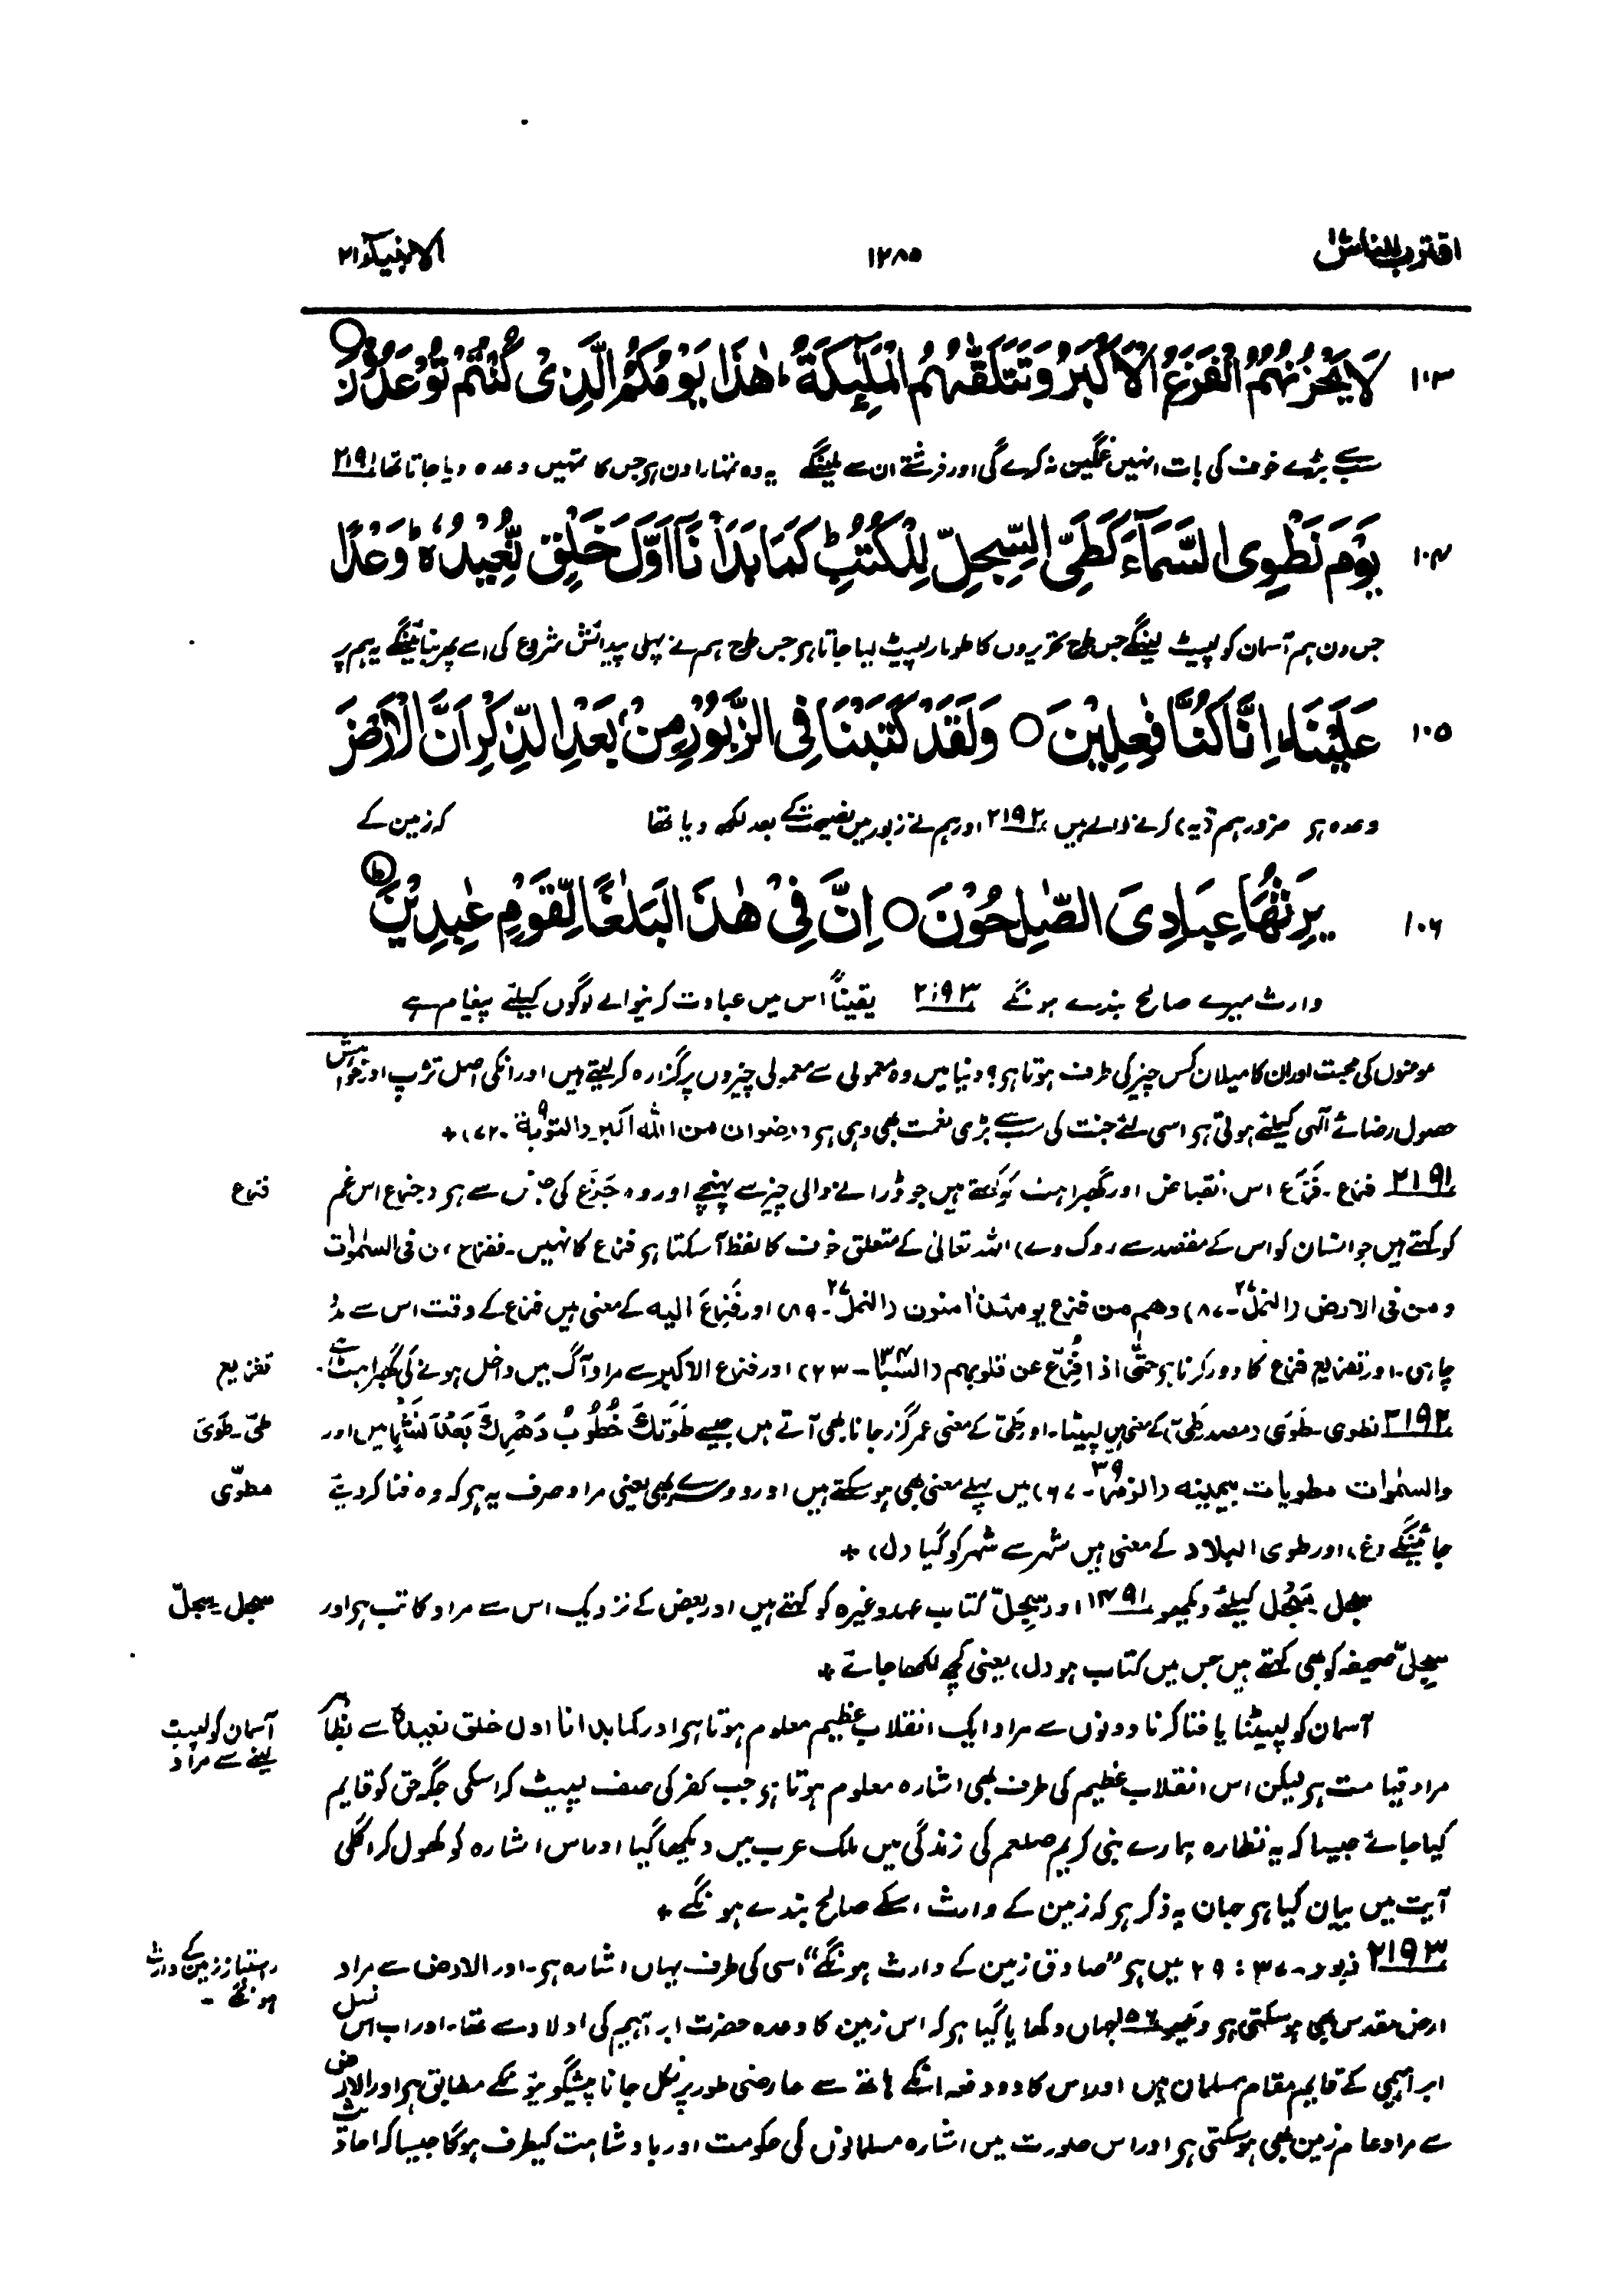 اقترب للناس ۱۷
۱۲۸۵
الانبیاء ۲۱
۱۰۳ لَا یَحْزُنُهُمُ الْفَزَعُ الْاَكْبَرُ وَتَتَلَقّٰىهُمُ الْمَلٰٓئِكَةُ ؕ هٰذَا یَوْمُكُمُ الَّذِیْ كُنْتُمْ تُوْعَدُوْنَ ○
سب سے بڑے خوف کی بات انہیں غمگین نہ کرے گی اور فرشتے ان سے ملینگے یہ وہ تمہارا دن ہر جس کا تمہیں وعدہ دیا جاتا تھا ۲۱۹۱
۱۰۴ یَوْمَ نَطْوِی السَّمَآءَ كَطَیِّ السِّجِلِّ لِلْكُتُبِ ؕ كَمَا بَدَاْنَآ اَوَّلَ خَلْقٍ نُّعِیْدُهٗ ؕ وَعْدًا
جس دن ہم آسمان کو لپیٹ لینگے جس طرح تحریروں کا طومار لپیٹ لیا جاتا ہر جس طرح ہم نے پہلی پیدائش شروع کی اسے پھر بنائینگے یہ ہم پر
۱۰۵ عَلَیْنَا ؕ اِنَّا كُنَّا فٰعِلِیْنَ ○ وَلَقَدْ كَتَبْنَا فِی الزَّبُوْرِ مِنْۢ بَعْدِ الذِّكْرِ اَنَّ الْاَرْضَ
وعدہ ہر ضرور ہم (یہ) کرنے والے ہیں ۲۱۹۲ اور ہم نے زبور میں نصیحت کے بعد لکھ دیا تھا کہ زمین کے
۱۰۶ یَرِثُهَا عِبَادِیَ الصّٰلِحُوْنَ ○ اِنَّ فِیْ هٰذَا لَبَلٰغًا لِّقَوْمٍ عٰبِدِیْنَ ؕ
وارث میرے صالح بندے ہونگے ۲۱۹۳ یقیناً اس میں عبادت کرنیوالے لوگوں کیلئے پیغام ہے
مومنوں کی محبت اور ان کا میلان کس چیز کی طرف ہوتا ہر؟ دنیا میں وہ معمولی سے معمولی چیزوں پر گزارہ کر لیتے ہیں اور انکی اصل تڑپ اور خواہش
حصول رضائے الٰہی کیلئے ہوتی ہر اسی لئے جنت کی سب سے بڑی نعمت بھی وہی ہر (رضوان من الله اكبر (التوبة ۹ ۔ ۷۲) +
۲۱۹۱ فزع ۔ فَزَع اس انقباض اور گھبراہٹ کو کہتے ہیں جو ڈرانے والی چیز سے پہنچے اور وہ جَزَع کی جنس سے ہر (جزع اس غم
فزع
کو کہتے ہیں جو انسان کو اس کے مقصد سے روک دے) اللہ تعالیٰ کے متعلق خوف کا لفظ آسکتا ہر فزع کا نہیں ۔ ففزع من فی السمٰوات
و من فی الارض (النمل ۲۷ ۔ ۸۷) وهم من فزع یومئذ اٰمنون (النمل ۲۷ ۔ ۸۹) اور فَزِعَ الیه کے معنی ہیں فزع کے وقت اس سے مدد
چاہی ۔ اور تفزیع فزع کا دور کرنا ہر حتّٰی اذا فُزِّع عن قلوبهم (السبا ۳۴ ۔ ۲۳) اور فزع الاکبر سے مراد آگ میں داخل ہونے کی گھبراہٹ ہے ۔
تفزیع
۲۱۹۲ نطوی ۔ طَوَی (مصدر طَیّ) کے معنی ہیں لپیٹا ۔ اور طَیّ کے معنی عمر گزر جانا بھی آتے ہیں جیسے طَوَتْكَ خُطُوْبُ دَهْرِكَ بَعْدَ نَشْرٍ میں اور
طیّ ۔ طَوَیَ
والسمٰوات مطویات بیمینه (الزمر ۳۹ ۔ ۶۷) میں پہلے معنی بھی ہو سکتے ہیں اور دوسرے بھی یعنی مراد صرف یہ ہر کہ وہ فنا کر دیئے
مطوّی
جائینگے (غ) اور طوی البلاد کے معنی ہیں شہر سے شہر کو گیا (ل) +
سجل ۔ یَسْجُل کیلئے دیکھو ۱۴۹۱ اور سِجِلّ کتاب عہد وغیرہ کو کہتے ہیں اور بعض کے نزدیک اس سے مراد کاتب ہر اور
سجل ۔ سِجِلّ
سِجِلّ صحیفہ کو بھی کہتے ہیں جس میں کتاب ہو (ل) یعنی کچھ لکھا جائے +
آسمان کو لپیٹنا یا فنا کرنا دونوں سے مراد ایک انقلاب عظیم معلوم ہوتا ہر اور كما بدانا اول خلق نعیده سے بظاہر
آسمان کو لپیٹ
لینے سے مراد
مراد قیامت ہر لیکن اس انقلاب عظیم کی طرف بھی اشارہ معلوم ہوتا ہر جب کفر کی صف لپیٹ کر اسکی جگہ حق کو قایم
کیا جائے جیسا کہ یہ نظارہ ہمارے نبی کریم صلعم کی زندگی میں ملک عرب میں دیکھا گیا اور اس اشارہ کو کھول کر اگلی
آیت میں بیان کیا ہر جہاں یہ ذکر ہر کہ زمین کے وارث اسکے صالح بندے ہونگے +
۲۱۹۳ زبور ۔ ۳۷ : ۲۹ میں ہر "صادق زمین کے وارث ہونگے" اسی کی طرف یہاں اشارہ ہر ۔ اور الارض سے مراد
راستباز زمین کے وارث
ہونگے ۔
ارض مقدس بھی ہو سکتی ہر دیکھو ۱۵۶ جہاں دکھایا گیا ہر کہ اس زمین کا وعدہ حضرت ابراہیم کی اولاد سے تھا ۔ اور اب اس نسل
ابراہیمی کے قایم مقام مسلمان ہیں اور اس کا دو دفعہ انکے ہاتھ سے عارضی طور پر نکل جانا پیشگوئیوں کے مطابق ہر اور الارض
سے مراد عام زمین بھی ہو سکتی ہر اور اس صورت میں اشارہ مسلمانوں کی حکومت اور بادشاہت کیطرف ہوگا جیسا کہ احادیث